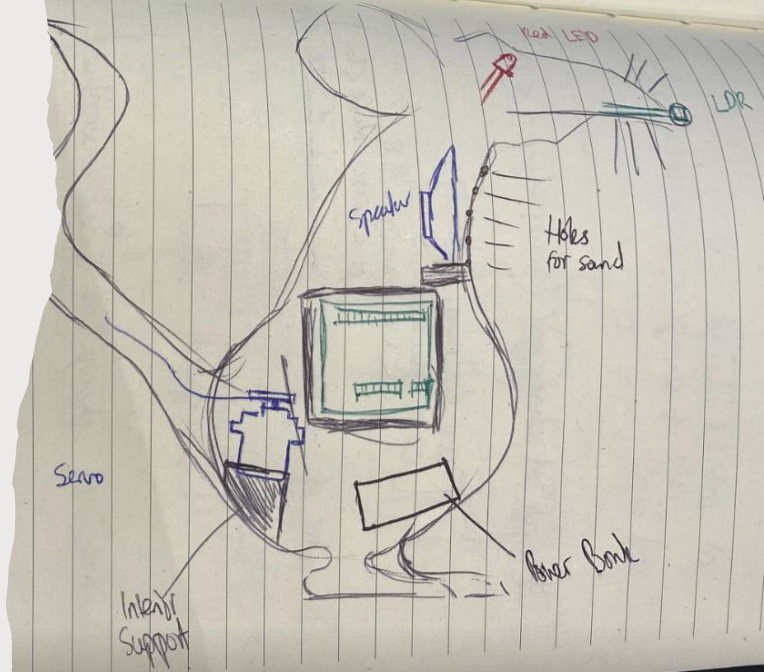 Red LED
LDR
Speaker
Holes
for sand
Servo
Power Bank
Interior
Support